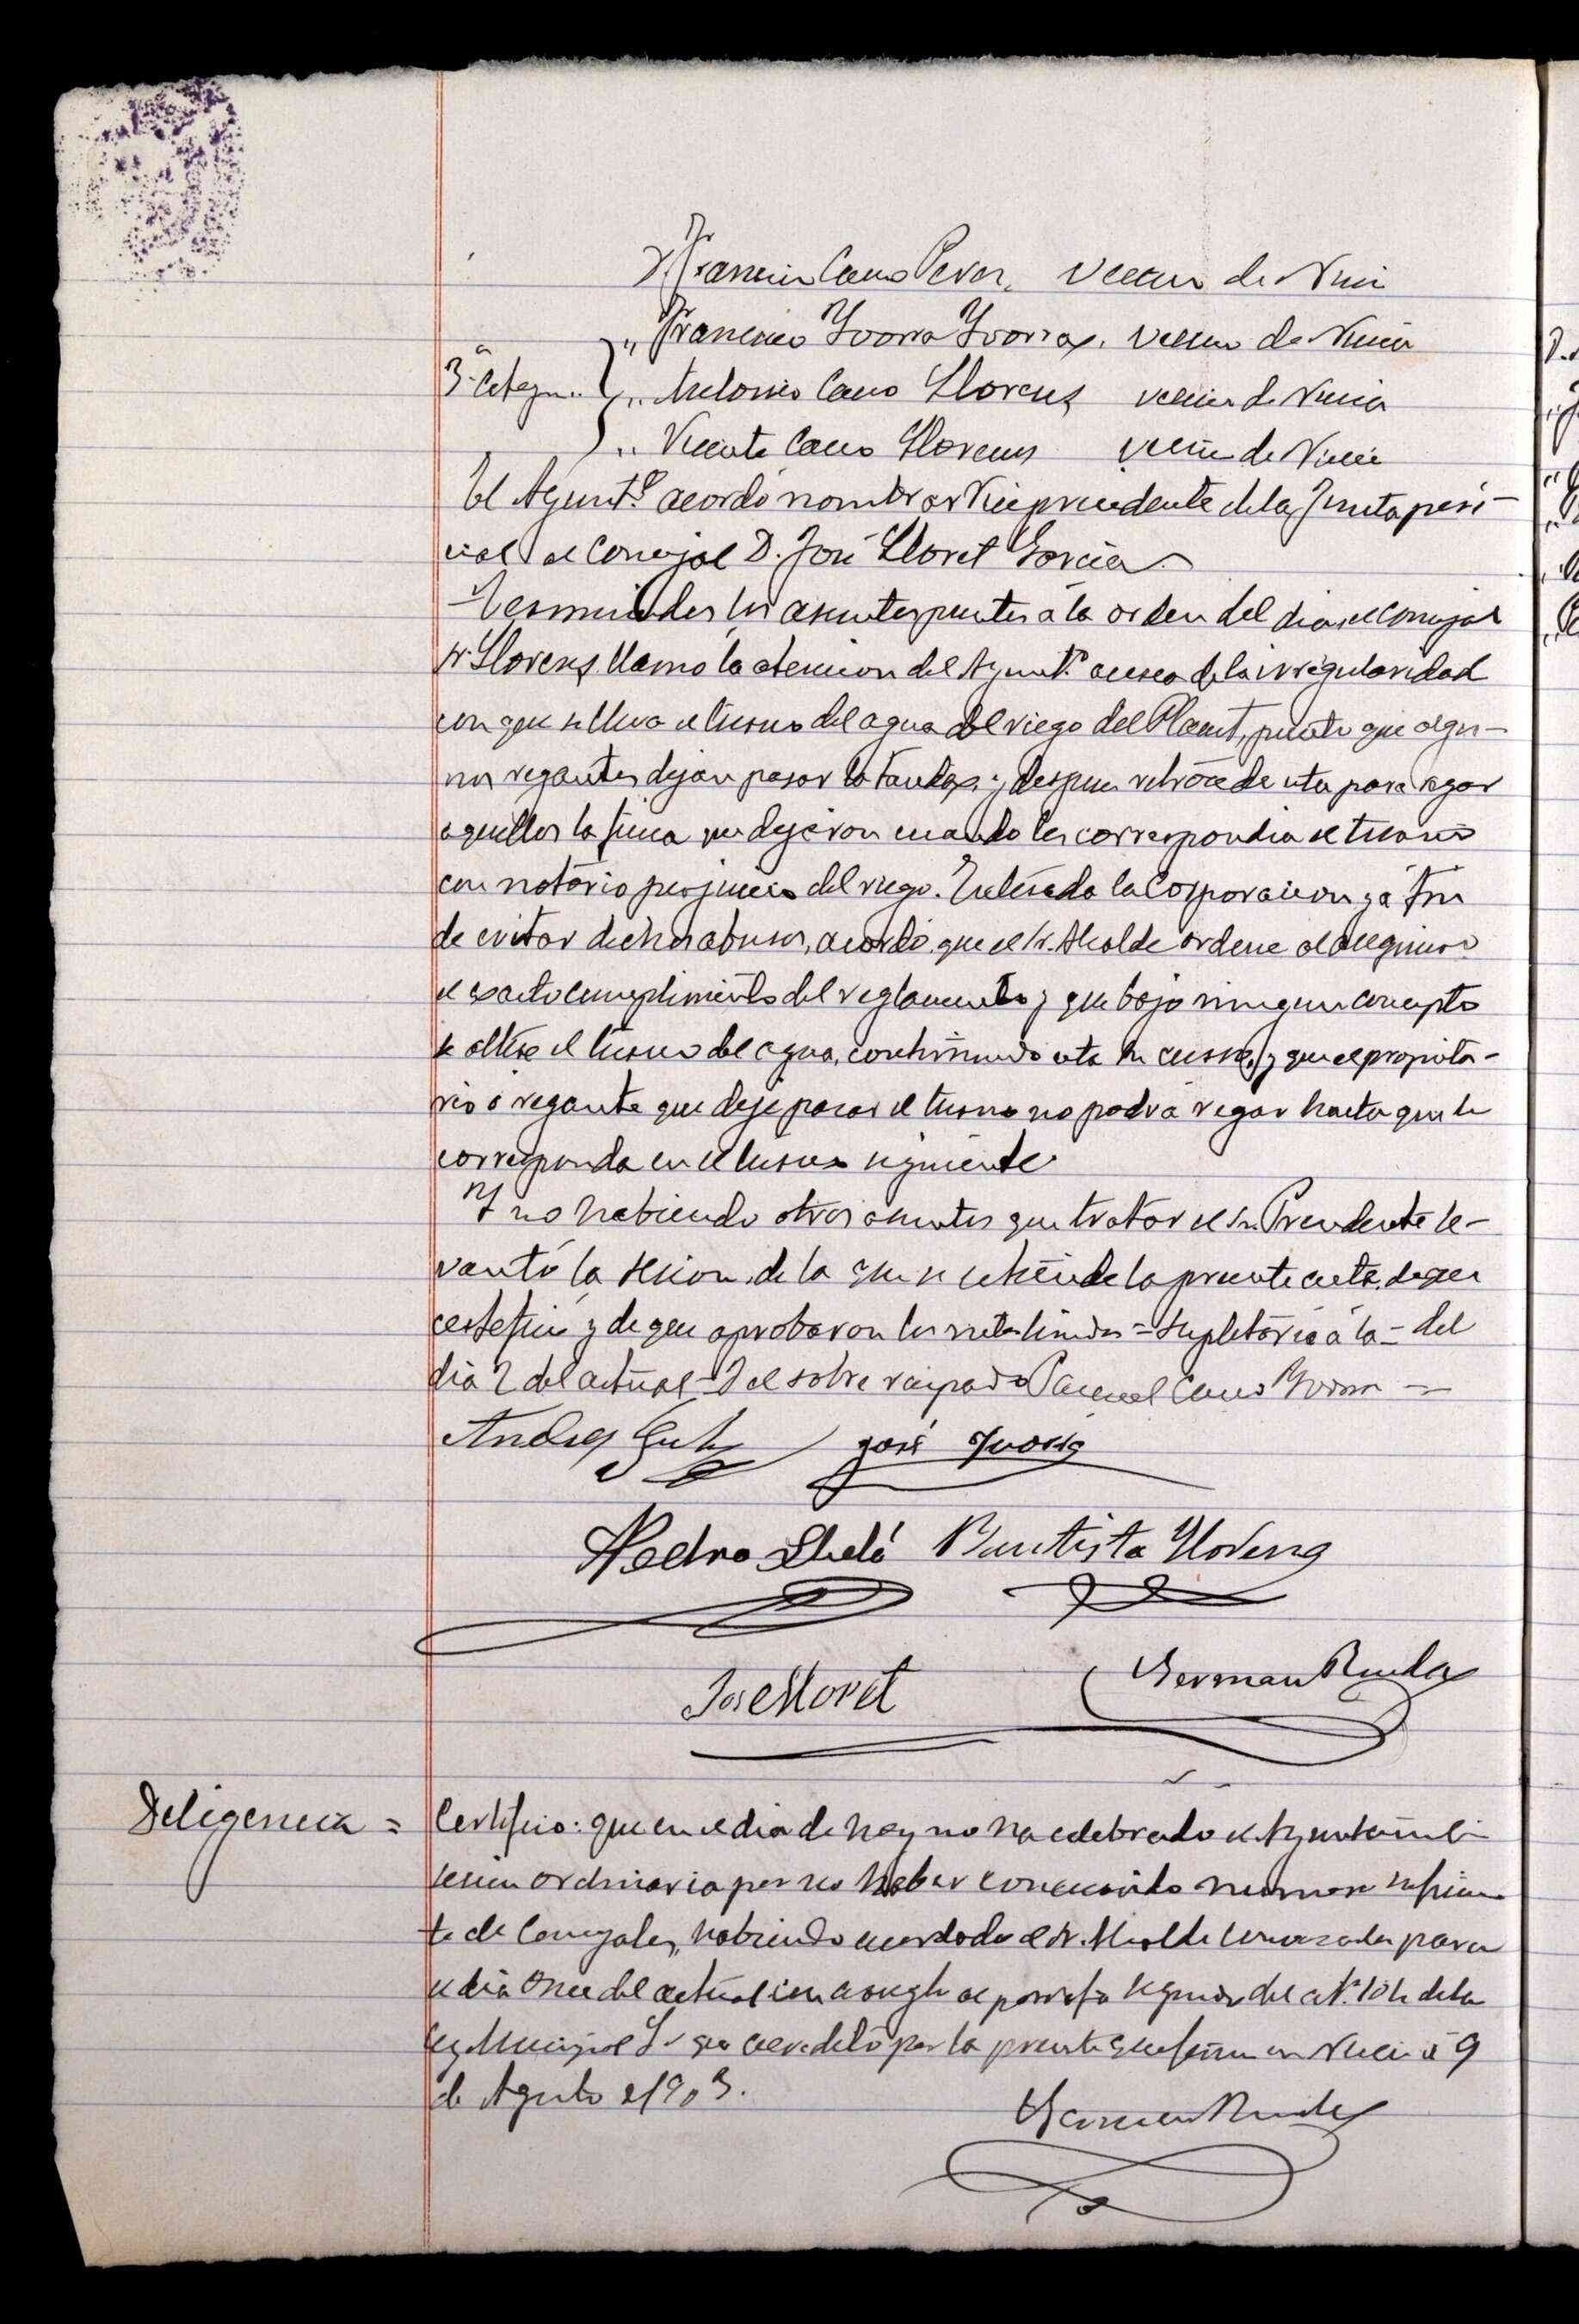 D. Francisco Cano Perez, vecino de Nucia
" Francisco Yvorra Yvorra, vecino de Nucia
3ª Categ.. " Antonio Cano Llorens vecino de Nucia
" Vicente Cano Llorens vecino de Nucia
El Ayuntº acordó nombrar Vicepresidente de la Junta peri-
cial al Concejal D. José Lloret Garcia.
Terminados los asuntos puestos á la orden del dia, el Concejal
Sr. Llorens llamó la atencion del Ayuntº acerca de la irregularidad
con que se lleva el turno del agua del riego del Planet, puesto que algu-
nos regantes dejan pasar la tanda, y despues retrocede esta para regar
aquellos la finca que dejaron cuando les correspondia el turno
con notorio perjuicio del riego. Enterada la Corporacion y á fin
de evitar dichos abusos, acordó que el Sr. Alcalde ordene al acequiero
el exacto cumplimiento del reglamento y que bajo ningun concepto
se altere el turno del agua, continuando esta su curso, y que el propieta-
rio ó regante que deje pasar el turno no podrá regar hasta que le
corresponda en el turno siguiente
Y no habiendo otros asuntos que tratar el Sr. Presidente le-
vantó la sesion, de la que se extiende la presente acta, de que
certifico y de que aprobaron los = supletoria á la = del
dia 2 del actual = Y el sobre raspado Pascual Cano Yvorra
Andres José Yvorra
Pedro Bautista Llorens
Jose Lloret German Rueda
Diligencia = Certifico: que en el dia de hoy no ha celebrado el Ayuntamiento
sesion ordinaria por no haber concurrido numero suficien-
te de Concejales, habiendo acordado el Sr. Alcalde convocarla para
el dia once del actual con arreglo al parrafo segundo del artº 104 de la
ley Municipal Y que acredito por la presente que firmo en Nucia á 9
de Agosto de 1903.
German Rueda